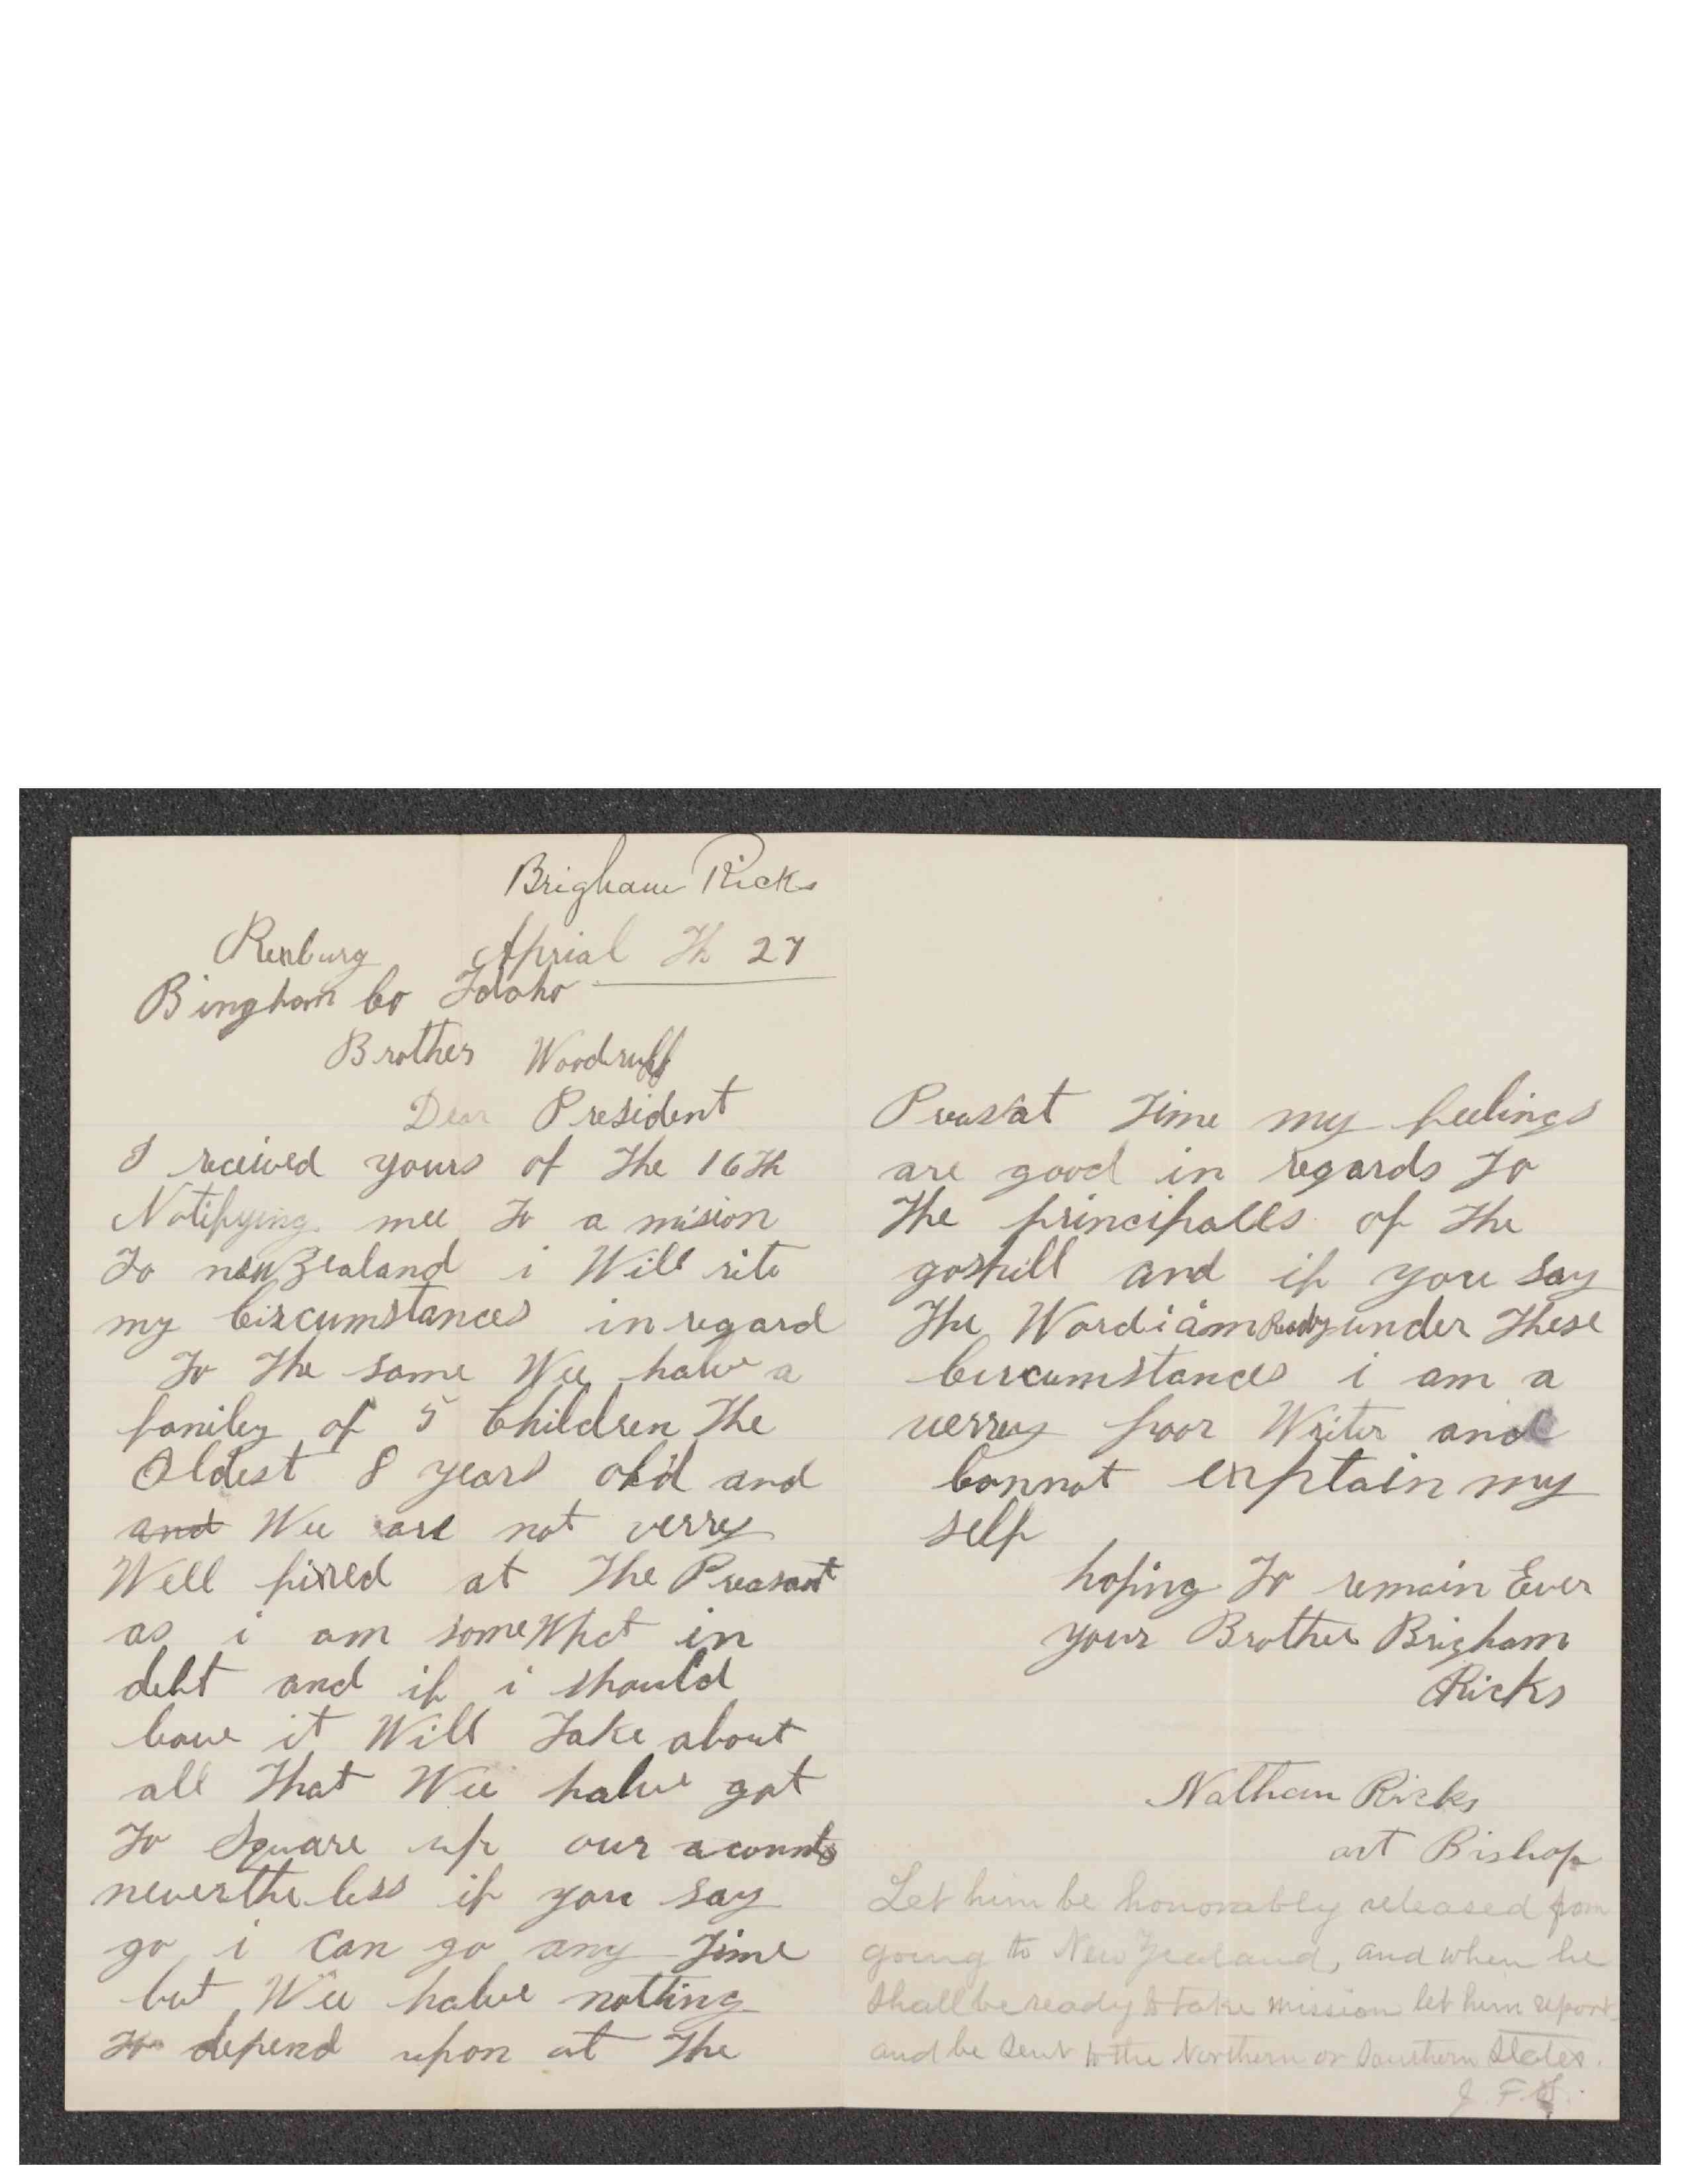 Brigham Ricks
Rexburg Aprial Th 27
Bingham Co Idaho
Brother Woodruff
Dear President
I received yours of the 16th
Notifying mee to a mision
to new Zealand i Will rite
my Circumstances in regard
to the same Wee halve a
familey of 5 Children The
Oldest 8 years old and
and Wee are not verry
Well fixed at the Preasant
as i am some What in
debt and if i should
leave it Will Take about
all that Wee halve got
to Square up our acounts
nevertheless if you say
go i can go any Time
but Wee halve notting
to depend upon at the
Preasat Time my feelings
are good in regards to
the principalls of the
gospill and if you say
The Word i am Ready under these
Circumstances i am a
verrey poor Writer and
Cannot explain my
self
hoping to remain Ever
your Brother Brigham
Ricks
Nathan Ricks
act Bishop
Let him be honorably released from
going to New Zealand, and when he
shall be ready to take mission let him report
and be sent to the Northern or Southern States.
J. F. S.